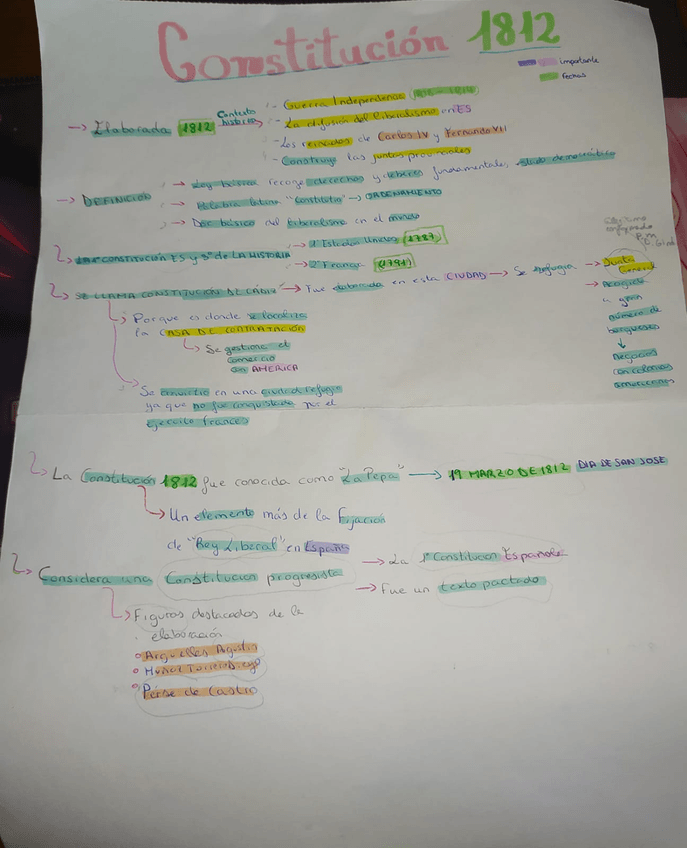 Constitución 1812
importante
fechas
→ Elaborada 1812 Contexto histórico → - Guerra Independencia
- La difusión del liberalismo en ES
- Los reinados de Carlos IV y Fernando VII
- Construye las juntas provinciales
→ DEFINICION → Ley básica recoge derechos y deberes fundamentales, estado democrático
→ Palabra latina "Constitutio" → ORDENAMIENTO
→ Doc básico del liberalismo en el mundo
CONSTITUCIÓN ES y 3ª de LA HISTORIA → 1º Estados Unidos (1787)
→ 2º Francia (1791)
SE LLAMA CONSTITUCIÓN DE CÁDIZ → Fue elaborada en esta CIUDAD → Se refugia → Junta
General
→ Acogida
a gran
número de
burgueses
↓
negocios
con colonias
americanas
→ Porque es donde se localiza
la CASA DE CONTRATACIÓN
→ Se gestiona el
comercio
con AMERICA
→ Se convirtió en una ciudad refugio
ya que no fue conquistada por el
ejercito frances
La Constitución 1812 fue conocida como "La Pepa" → 19 MARZO DE 1812 DIA DE SAN JOSE
→ Un elemento más de la Fijación
de "Rey Liberal" en España
→ Considera una Constitucion progresista → La 1ª Constitucion Española
→ Fue un texto pactado
→ Figuras destacados de la
elaboración
○ Arguelles Agustin
○ Muñoz Torrero Diego
○ Pérse de Castro